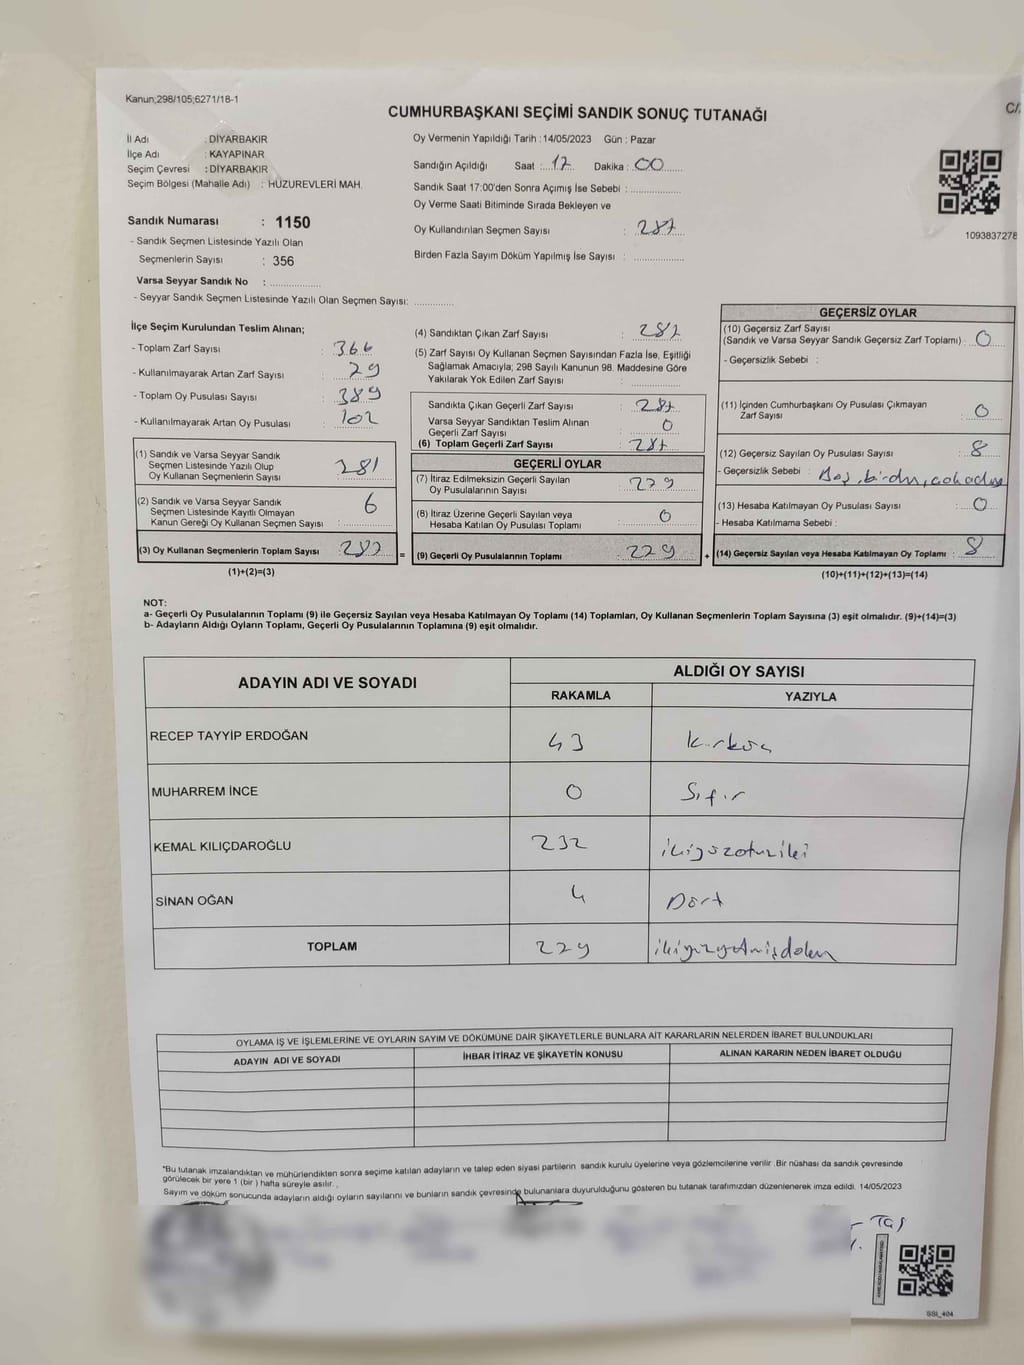 Kanun;298/105;6271/18-1
CUMHURBAŞKANI SEÇİMİ SANDIK SONUÇ TUTANAĞI
C/
İl Adı : DİYARBAKIR
İlçe Adı : KAYAPINAR
Seçim Çevresi : DİYARBAKIR
Seçim Bölgesi (Mahalle Adı) : HUZUREVLERİ MAH.
Oy Vermenin Yapıldığı Tarih : 14/05/2023 Gün : Pazar
Sandığın Açıldığı Saat : 17 Dakika : 00
Sandık Saat 17:00'den Sonra Açımış İse Sebebi :
Oy Verme Saati Bitiminde Sırada Bekleyen ve
Oy Kullandırılan Seçmen Sayısı : 287
Birden Fazla Sayım Döküm Yapılmış İse Sayısı :
1093837278
Sandık Numarası : 1150
- Sandık Seçmen Listesinde Yazılı Olan
Seçmenlerin Sayısı : 356
Varsa Seyyar Sandık No :
- Seyyar Sandık Seçmen Listesinde Yazılı Olan Seçmen Sayısı:
İlçe Seçim Kurulundan Teslim Alınan;
- Toplam Zarf Sayısı : 366
- Kullanılmayarak Artan Zarf Sayısı : 29
- Toplam Oy Pusulası Sayısı : 389
- Kullanılmayarak Artan Oy Pusulası : 102
(1) Sandık ve Varsa Seyyar Sandık
Seçmen Listesinde Yazılı Olup
Oy Kullanan Seçmenlerin Sayısı : 281
(2) Sandık ve Varsa Seyyar Sandık
Seçmen Listesinde Kayıtlı Olmayan
Kanun Gereği Oy Kullanan Seçmen Sayısı : 6
(3) Oy Kullanan Seçmenlerin Toplam Sayısı : 287
(1)+(2)=(3)
=
(4) Sandıktan Çıkan Zarf Sayısı : 287
(5) Zarf Sayısı Oy Kullanan Seçmen Sayısından Fazla İse, Eşitliği
Sağlamak Amacıyla; 298 Sayılı Kanunun 98. Maddesine Göre
Yakılarak Yok Edilen Zarf Sayısı :
Sandıkta Çıkan Geçerli Zarf Sayısı : 287
Varsa Seyyar Sandıktan Teslim Alınan
Geçerli Zarf Sayısı : 0
(6) Toplam Geçerli Zarf Sayısı : 287
GEÇERLİ OYLAR
(7) İtiraz Edilmeksizin Geçerli Sayılan
Oy Pusulalarının Sayısı : 279
(8) İtiraz Üzerine Geçerli Sayılan veya
Hesaba Katılan Oy Pusulası Toplamı : 0
(9) Geçerli Oy Pusulalarının Toplamı : 279
+
GEÇERSİZ OYLAR
(10) Geçersiz Zarf Sayısı
(Sandık ve Varsa Seyyar Sandık Geçersiz Zarf Toplamı) : 0
- Geçersizlik Sebebi :
(11) İçinden Cumhurbaşkanı Oy Pusulası Çıkmayan
Zarf Sayısı : 0
(12) Geçersiz Sayılan Oy Pusulası Sayısı : 8
- Geçersizlik Sebebi :
(13) Hesaba Katılmayan Oy Pusulası Sayısı : 0
- Hesaba Katılmama Sebebi :
(14) Geçersiz Sayılan veya Hesaba Katılmayan Oy Toplamı : 8
(10)+(11)+(12)+(13)=(14)
NOT:
a- Geçerli Oy Pusulalarının Toplamı (9) ile Geçersiz Sayılan veya Hesaba Katılmayan Oy Toplamı (14) Toplamları, Oy Kullanan Seçmenlerin Toplam Sayısına (3) eşit olmalıdır. (9)+(14)=(3)
b- Adayların Aldığı Oyların Toplamı, Geçerli Oy Pusulalarının Toplamına (9) eşit olmalıdır.
ADAYIN ADI VE SOYADI
ALDIĞI OY SAYISI
RAKAMLA YAZIYLA
RECEP TAYYİP ERDOĞAN 43 Kırküç
MUHARREM İNCE 0 Sıfır
KEMAL KILIÇDAROĞLU 232 ikiyüzotuziki
SİNAN OĞAN 4 Dört
TOPLAM 279 ikiyüzyetmişdokuz
OYLAMA İŞ VE İŞLEMLERİNE VE OYLARIN SAYIM VE DÖKÜMÜNE DAİR ŞİKAYETLERLE BUNLARA AİT KARARLARIN NELERDEN İBARET BULUNDUKLARI
ADAYIN ADI VE SOYADI İHBAR İTİRAZ VE ŞİKAYETİN KONUSU ALINAN KARARIN NEDEN İBARET OLDUĞU
"Bu tutanak imzalandıktan ve mühürlendikten sonra seçime katılan adayların ve talep eden siyasi partilerin sandık kurulu üyelerine veya gözlemcilerine verilir .Bir nüshası da sandık çevresinde
görülecek bir yere 1 (bir ) hafta süreyle asılır. .
Sayım ve döküm sonucunda adayların aldığı oyların sayılarını ve bunların sandık çevresinde bulunanlara duyurulduğunu gösteren bu tutanak tarafımızdan düzenlenerek imza edildi. 14/05/2023
TAŞ
SSI_404